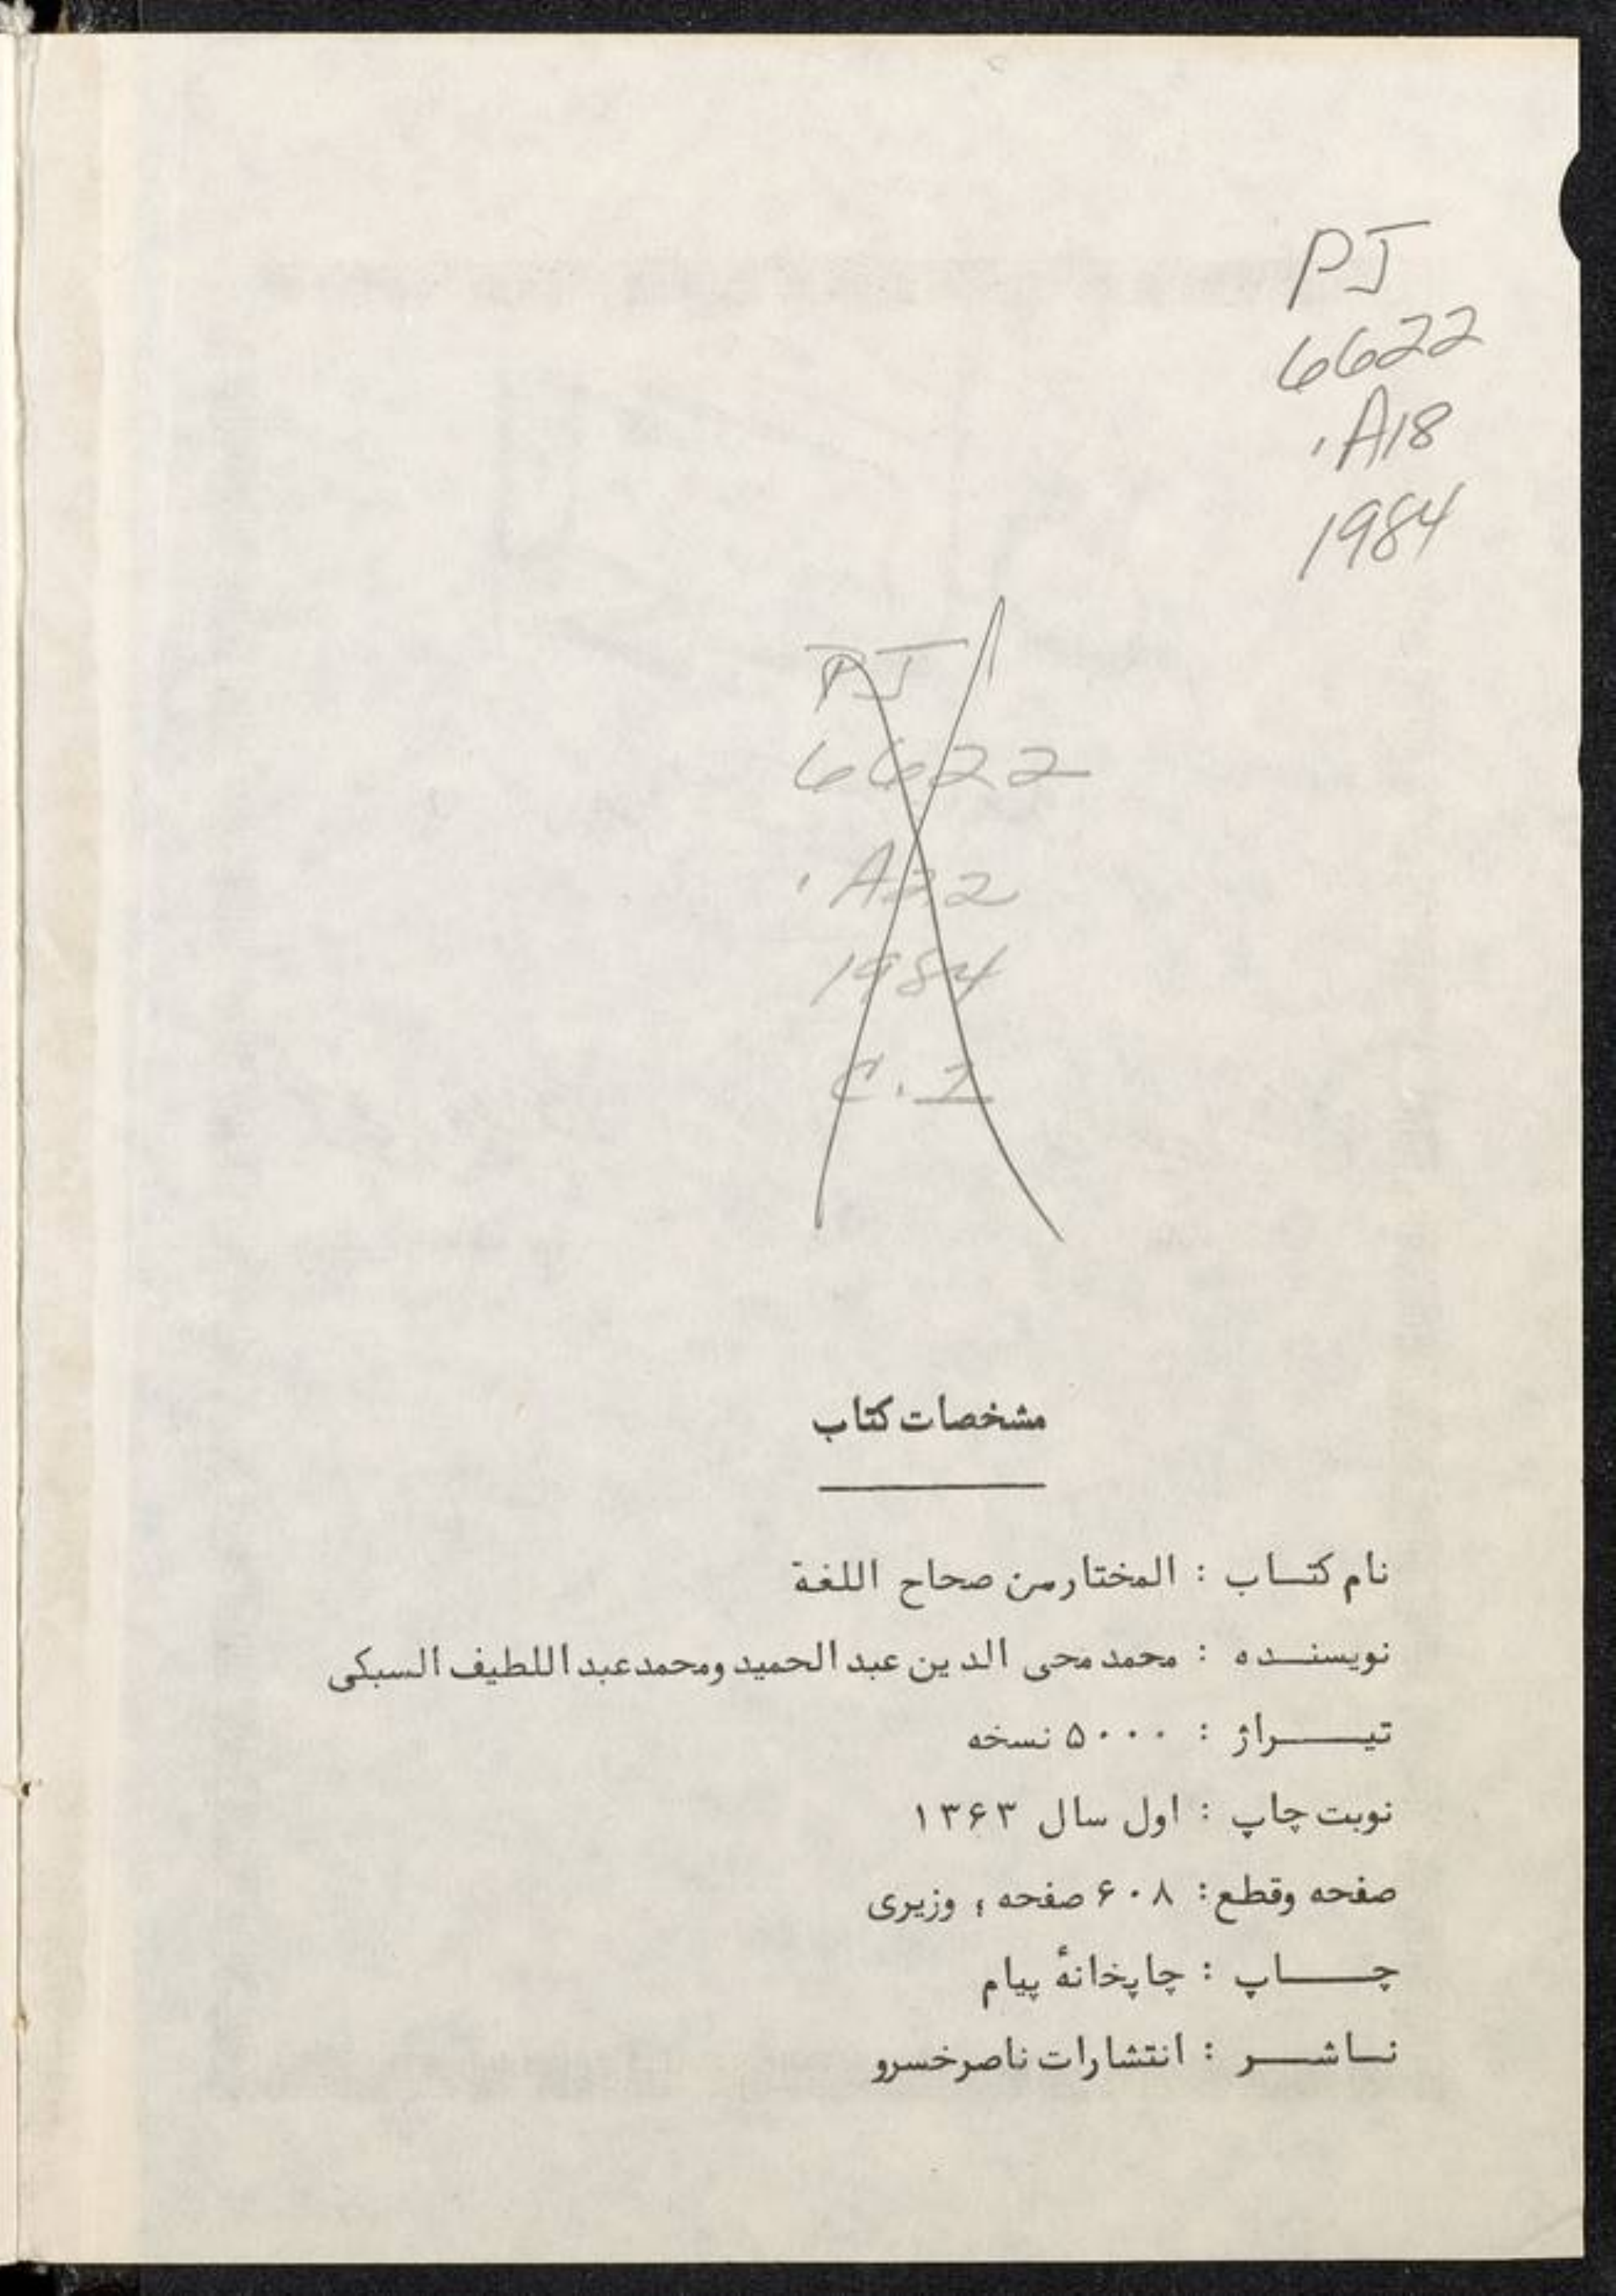 PJ
6622
.A18
1984
PJ
6622
.A22
1984
C.1
مشخصات کتاب
نام کتاب : المختار من صحاح اللغة
نویسنده : محمد محی الدین عبد الحمید ومحمد عبد اللطیف السبکی
تیراژ : ۵۰۰۰ نسخه
نوبت چاپ : اول سال ۱۳۶۳
صفحه وقطع : ۶۰۸ صفحه ، وزیری
چاپ : چاپخانهٔ پیام
ناشر : انتشارات ناصرخسرو